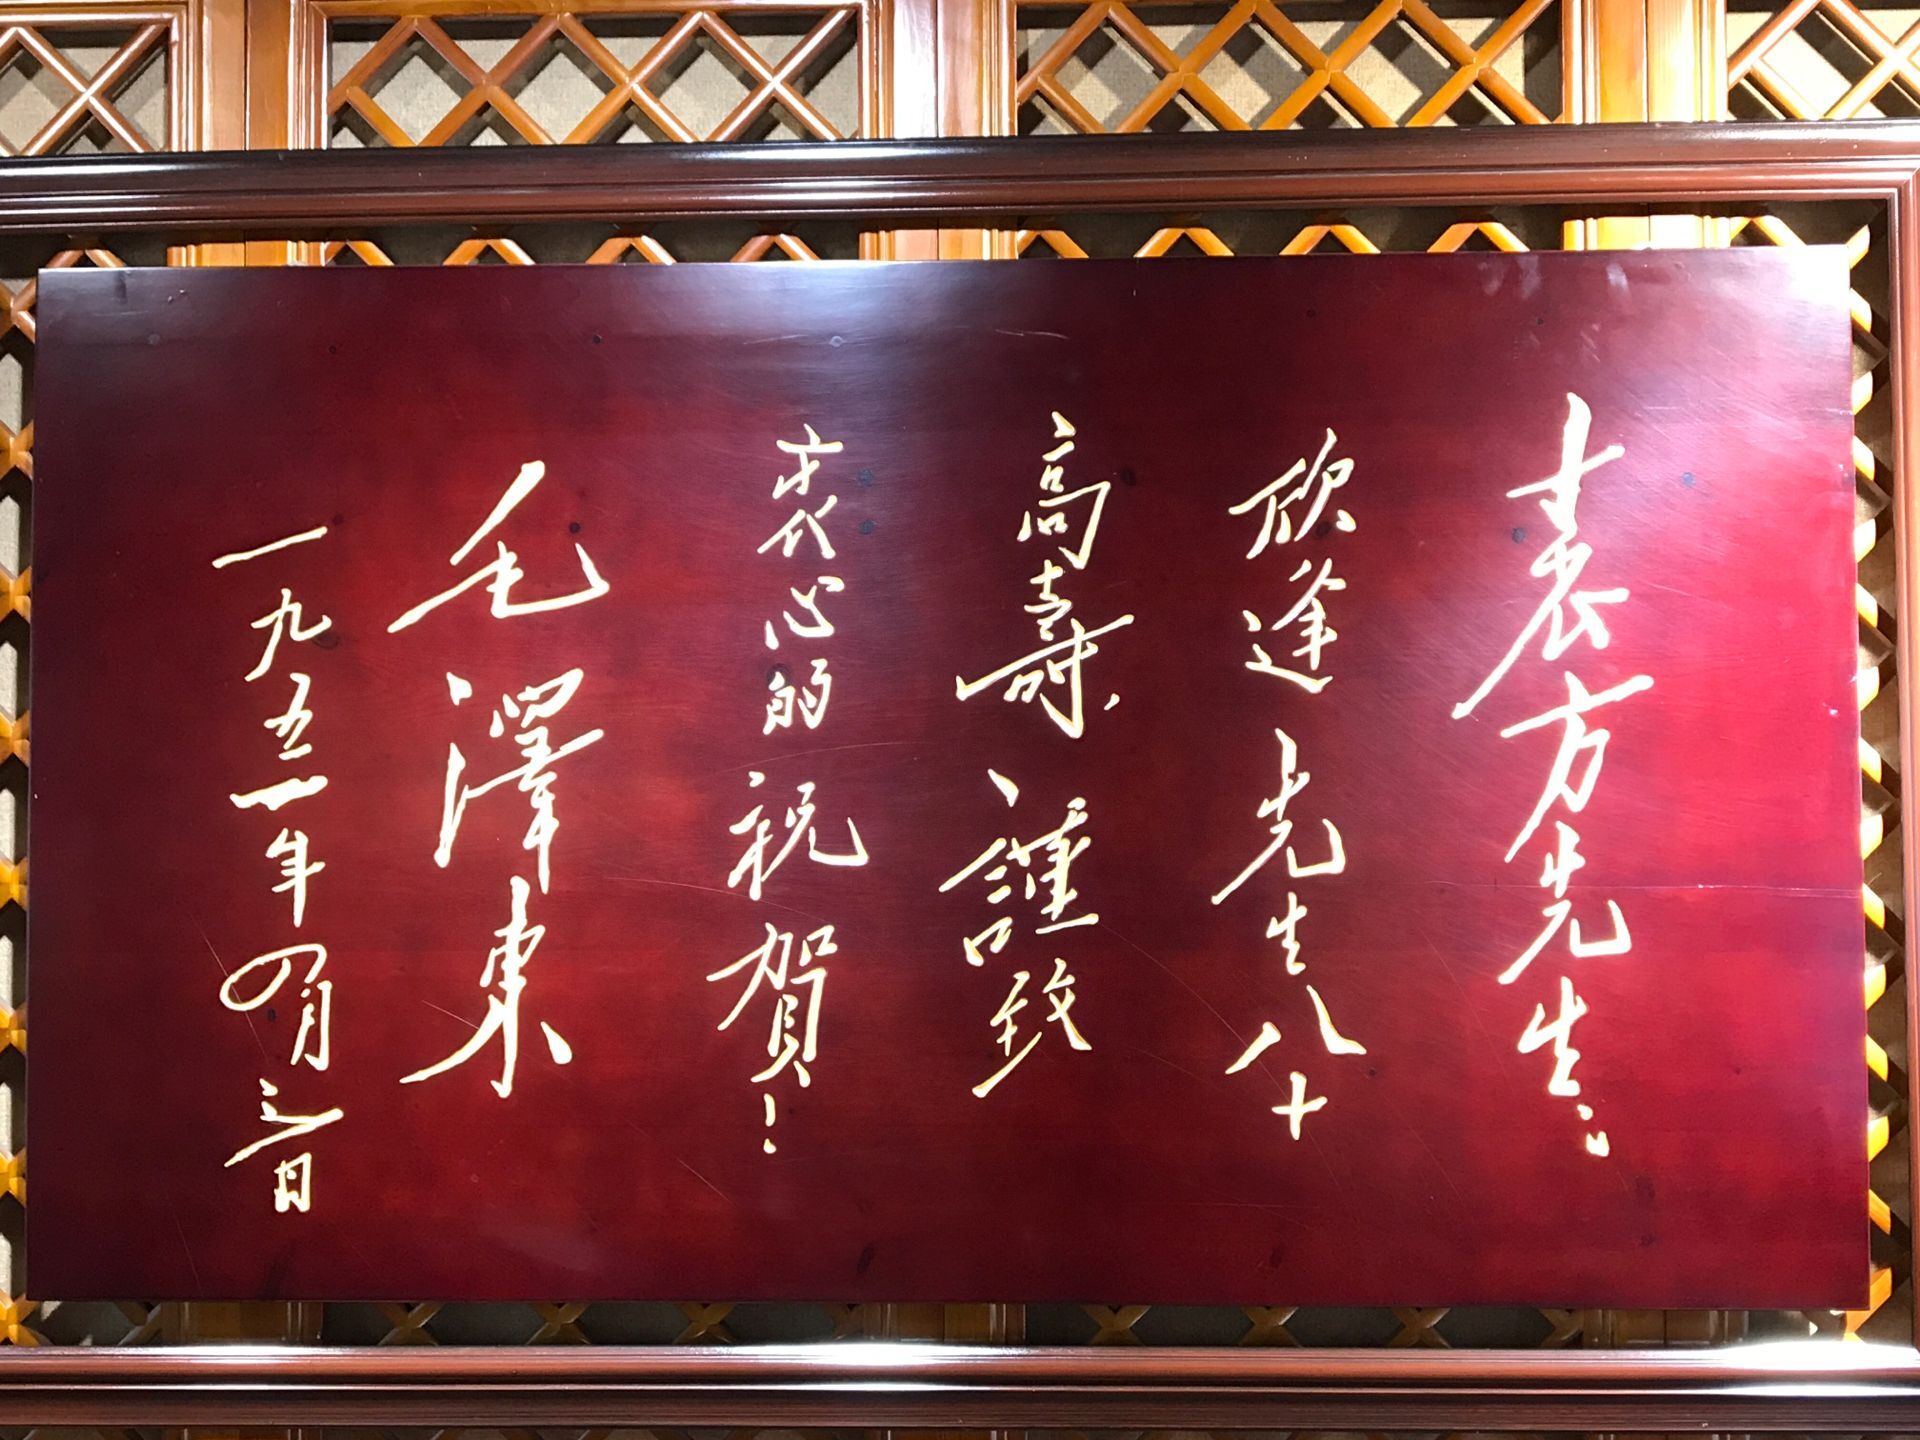 表方先生：
欣逢先生八十
高壽，謹致
衷心的祝賀！
毛澤東
一九五一年四月三日